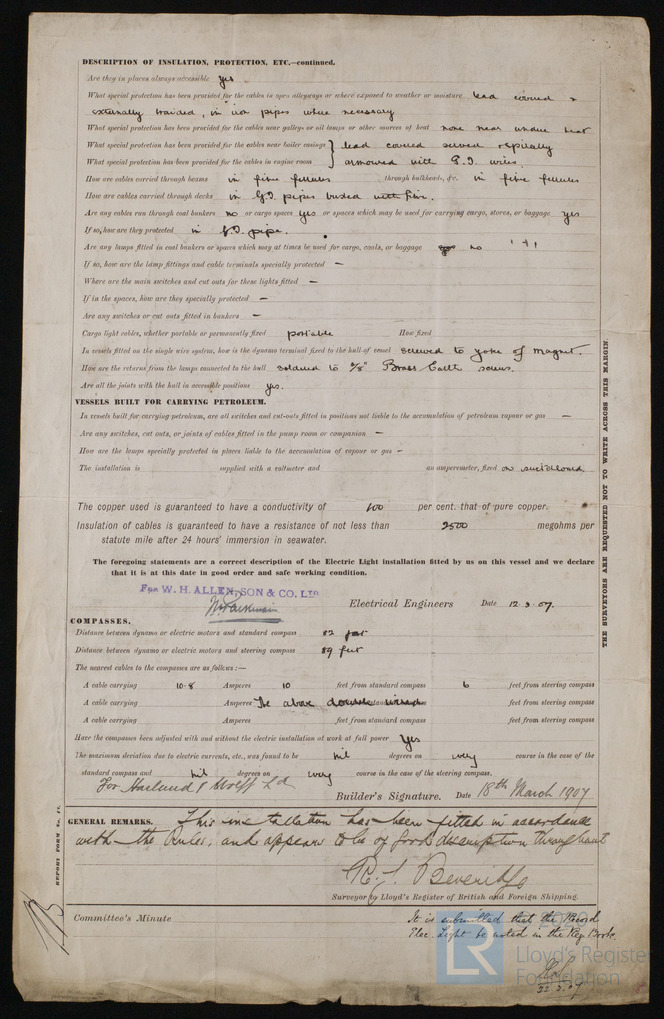 DESCRIPTION OF INSULATION, PROTECTION, ETC.—continued.
Are they in places always accessible yes
What special protection has been provided for the cables in open alleyways or where exposed to weather or moisture lead covered &
externally braided, in iron pipes where necessary
What special protection has been provided for the cables near galleys or oil lamps or other sources of heat none near undue heat
What special protection has been provided for the cables near boiler casings } lead covered served specially
What special protection has been provided for the cables in engine room } armoured with G.I. wires.
How are cables carried through beams in fibre ferrules through bulkheads, &c. in fibre ferrules
How are cables carried through decks in G.I. pipes bushed with fibre.
Are any cables run through coal bunkers no or cargo spaces yes or spaces which may be used for carrying cargo, stores, or baggage yes
If so, how are they protected in G.I. pipe.
Are any lamps fitted in coal bunkers or spaces which may at times be used for cargo, coals, or baggage no
If so, how are the lamp fittings and cable terminals specially protected —
Where are the main switches and cut outs for these lights fitted —
If in the spaces, how are they specially protected —
Are any switches or cut outs fitted in bunkers —
Cargo light cables, whether portable or permanently fixed portable How fixed
In vessels fitted on the single wire system, how is the dynamo terminal fixed to the hull of vessel screwed to yoke of magnet.
How are the returns from the lamps connected to the hull soldered to 5/8" Brass Earth screws.
Are all the joints with the hull in accessible positions yes.
VESSELS BUILT FOR CARRYING PETROLEUM.
In vessels built for carrying petroleum, are all switches and cut-outs fitted in positions not liable to the accumulation of petroleum vapour or gas —
Are any switches, cut outs, or joints of cables fitted in the pump room or companion —
How are the lamps specially protected in places liable to the accumulation of vapour or gas —
The installation is supplied with a voltmeter and an amperemeter, fixed on switchboard
The copper used is guaranteed to have a conductivity of 100 per cent. that of pure copper.
Insulation of cables is guaranteed to have a resistance of not less than 2500 megohms per
statute mile after 24 hours' immersion in seawater.
The foregoing statements are a correct description of the Electric Light installation fitted by us on this vessel and we declare
that it is at this date in good order and safe working condition.
For W. H. ALLEN, SON & CO. LTD
Electrical Engineers Date 12.3.07.
COMPASSES.
Distance between dynamo or electric motors and standard compass 82 feet
Distance between dynamo or electric motors and steering compass 89 feet
The nearest cables to the compasses are as follows:—
A cable carrying 10.8 Amperes 10 feet from standard compass 6 feet from steering compass
A cable carrying Amperes The above double wired feet from standard compass feet from steering compass
A cable carrying Amperes feet from standard compass feet from steering compass
Have the compasses been adjusted with and without the electric installation at work at full power Yes
The maximum deviation due to electric currents, etc., was found to be nil degrees on every course in the case of the
standard compass and nil degrees on every course in the case of the steering compass.
For Harland & Wolff Ld
Builder's Signature. Date 18th March 1907
GENERAL REMARKS. This installation has been fitted in accordance
with the Rules, and appears to be of good description throughout
R. J. Beveridge
Surveyor to Lloyd's Register of British and Foreign Shipping.
Committee's Minute
It is submitted that the Record
Elec. Light be noted in the Reg Book.
22.3.07
THE SURVEYORS ARE REQUESTED NOT TO WRITE ACROSS THIS MARGIN.
REPORT FORM No. 17.
LR
Lloyd's Register
Foundation